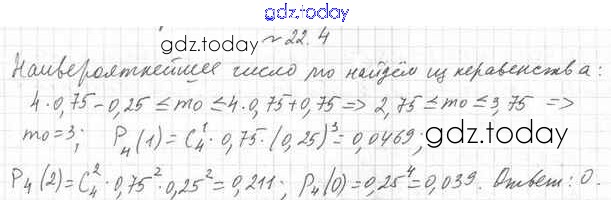 gdz.today
gdz.today № 22.4
Наивероятнейшее число mo найдём из неравенства:
4·0,75-0,25 ≤ mo ≤ 4·0,75+0,75 => 2,75 ≤ mo ≤ 3,75 =>
mo=3; P₄(1)=C₄¹·0,75·(0,25)³=0,0469; gdz.today
P₄(2)=C₄²·0,75²·0,25²=0,211; P₄(0)=0,25⁴=0,039. Ответ: 0.